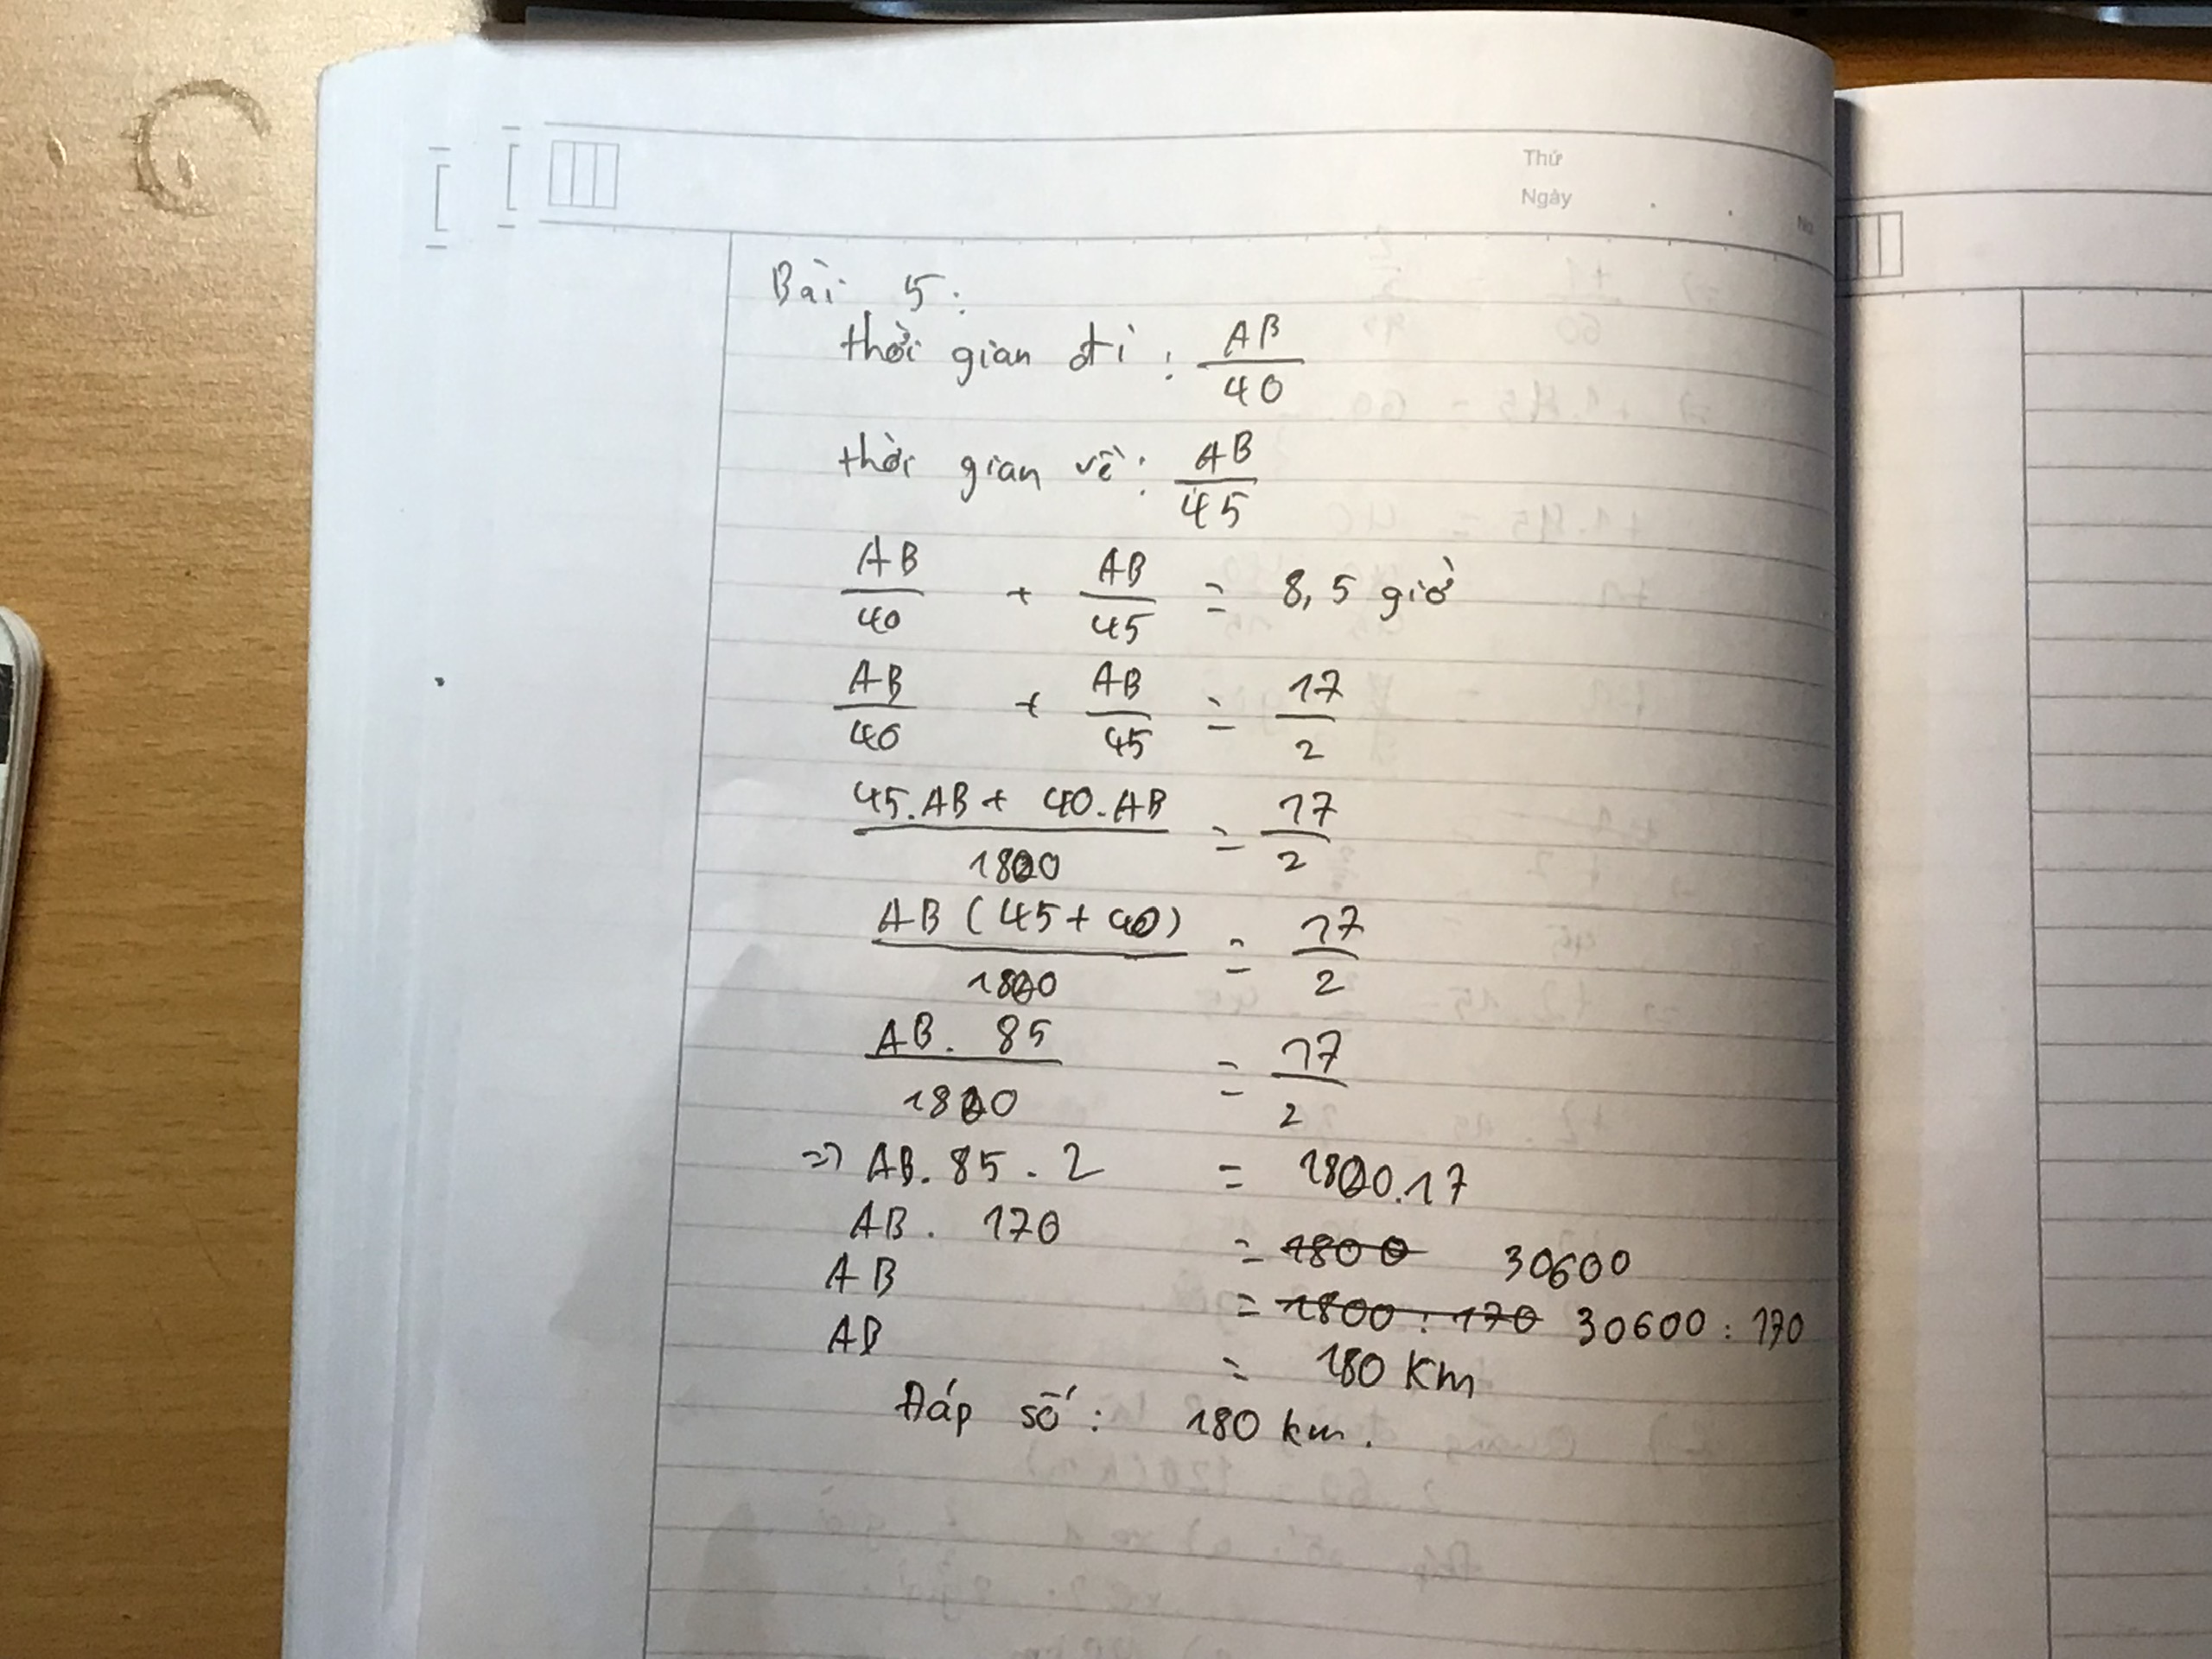 Thứ
Ngày
No
Bài 5:
thời gian đi : AB/40
thời gian về : AB/45
AB/40 + AB/45 = 8,5 giờ
AB/40 + AB/45 = 17/2
45.AB + 40.AB/1800 = 17/2
AB (45 + 40)/1800 = 17/2
AB. 85/1800 = 17/2
=> AB. 85 . 2 = 1800.17
AB. 170 = 1800 30600
AB = 1800 : 170 30600 : 170
AB = 180 Km
Đáp số : 180 km.